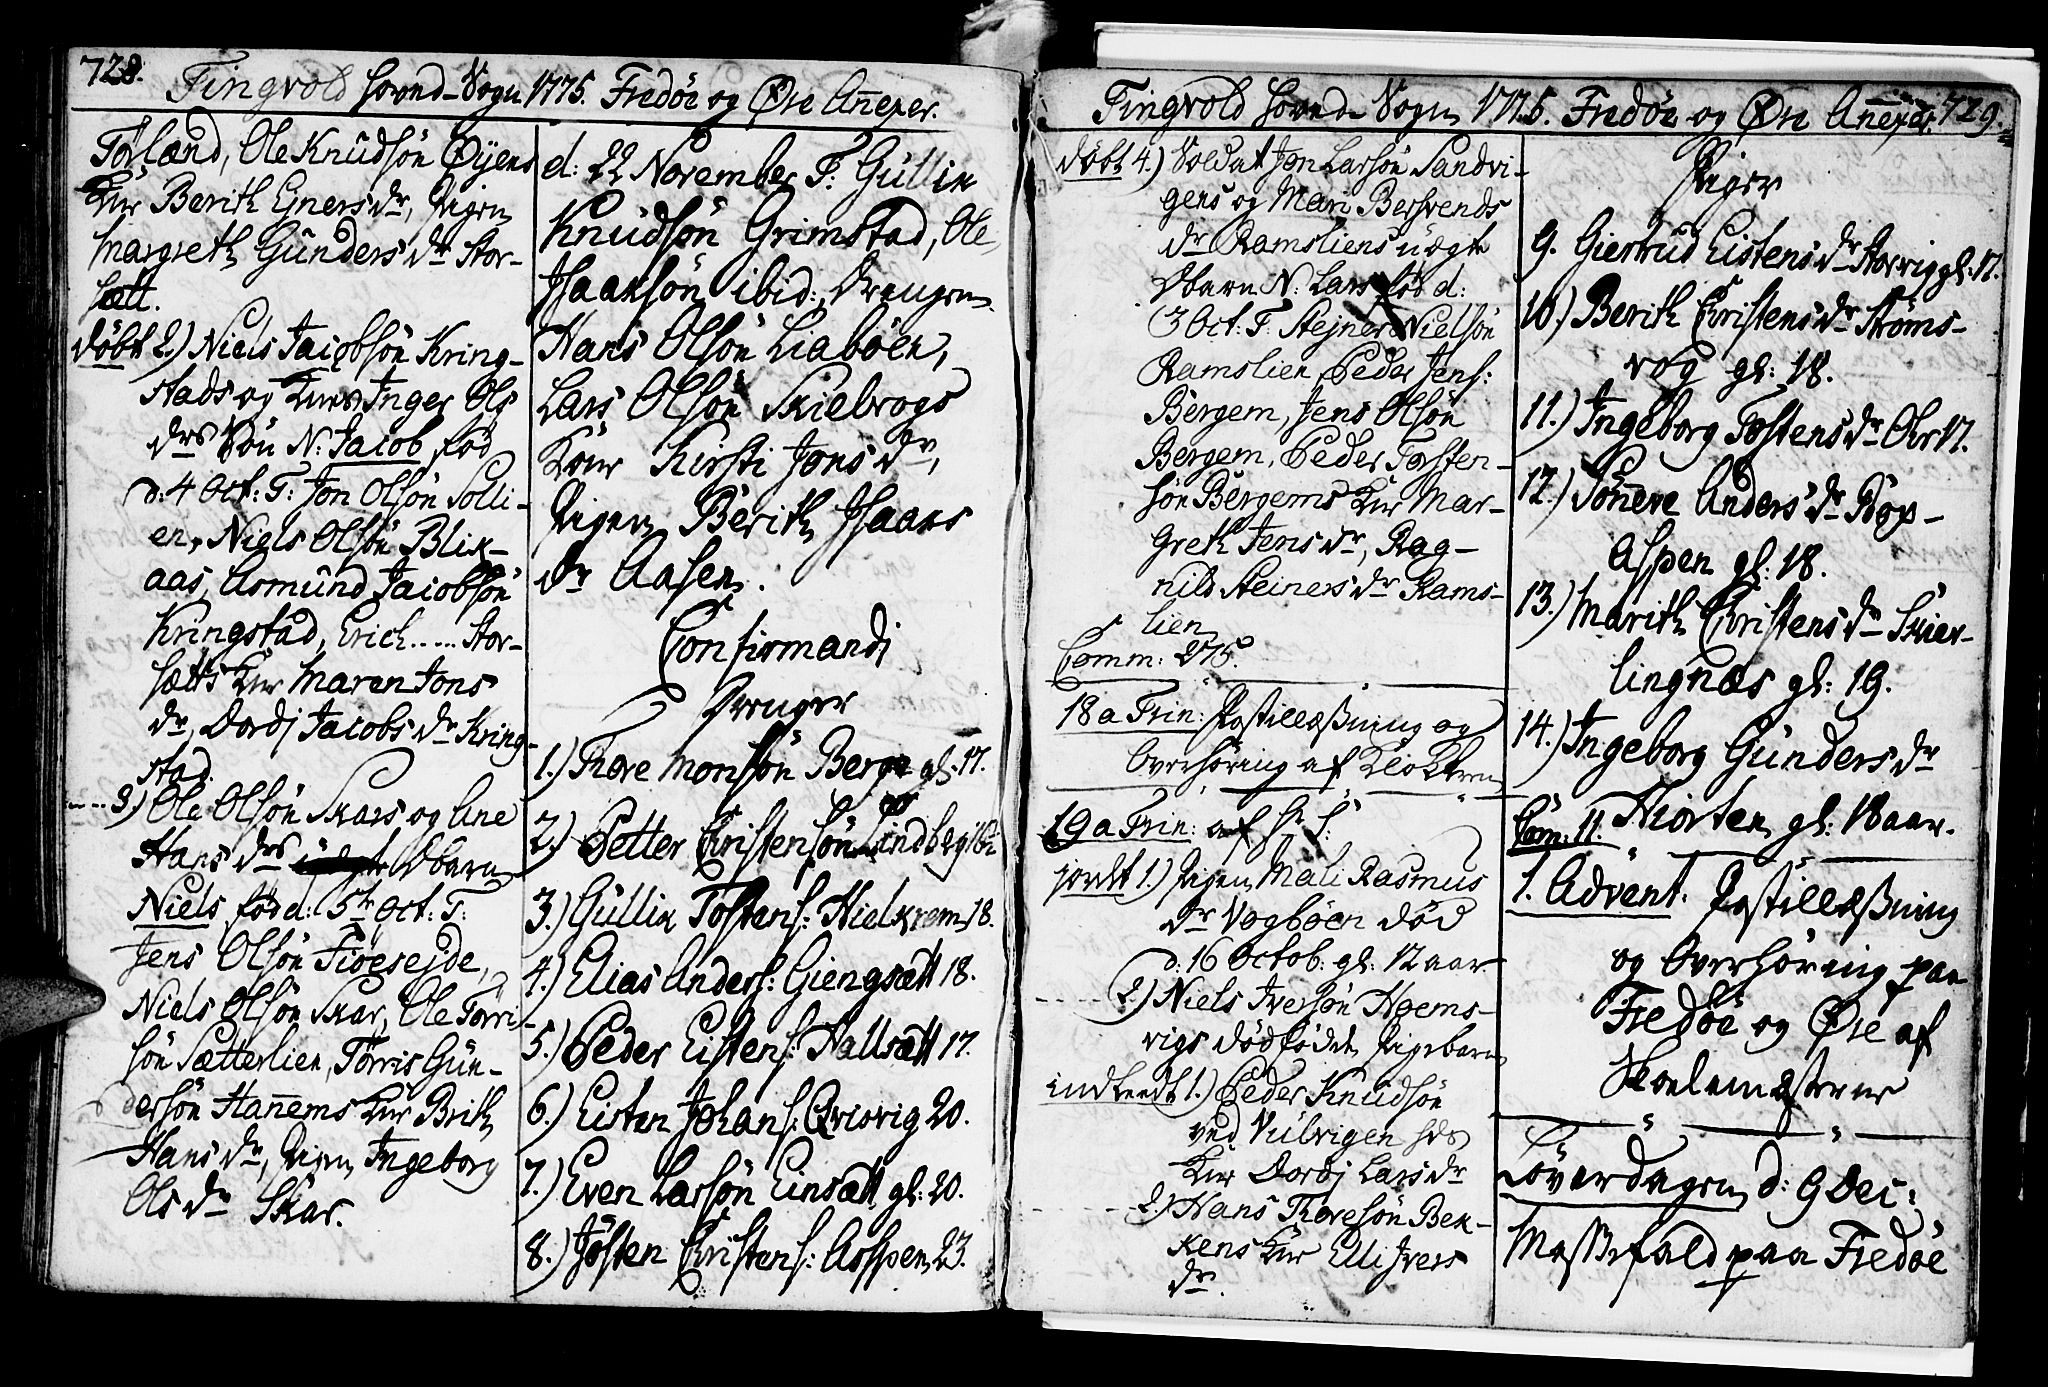 728.
Tingvold Hoved-Sogn 1775. Fredöe og Øre Añexer.
Torland, Ole Knudsön Øyens
Kür Berith Ejners dr, Pigen
Margreth Gunders dr Stor-
sætt.
döbt 2.) Niels Jacobsön Kring-
stads og Kürs Inger Ols
drs Sön N: Jacob, föd
d: 4 Oct: F: Jon Olsön Solli-
en, Niels Olsön Blik-
aas, Asmund Jacobsön
Kringstad, Erich..... Stor-
sætts Kür Maren Jons
dr, Dordj Jacobs dr Kring-
stad.
3.) Ole Olsön Skars og Ane
Hans drs Obarn
Niels föd d: 5te Oct: F:
Jens Olsön Fiöesejde,
Niels Olsön Skar, Ole Törri-
sön Sætterlien, Törris Gün-
dersön Hañems Kür Brith
Hans dr, Pigen Ingeborg
Ols dr Skar.
d: 22 November F: Güllik
Knudsön Grimstad, Ole
Isaaksön ibid:, Drengen
Hans Olsön Liaböen,
Lars Olsön Skiebrogs
Köne Kirsti Jons dr,
Pigen Berith Isaaks
dr Aasen.
Confirmandi
Drenger
1.) Thore Monsön Berge gl: 17.
2.) Petter Christensön Lindberg ibi
3.) Güllik Tostens: Hielkrem 18.
4.) Elias Anders: Giengsætt 18.
5.) Peder Eistens: Hallsætt 17.
6.) Eisten Johans: Qviovig 20.
7.) Even Larsön Einsætt gl: 20.
8.) Jösten Christens: Aspen 23.
Tingvold Hoved-Sogn 1775. Fredöe og Øre Añexer. 729.
döbt 4.) Soldat Jon Larsön Sandvi-
gens og Mari Bersvends
dr Ramsliens uægte
Obarn N: Lars föd d:
3 Oct: F: Stejner Nielsön
Ramslien, Peder Jens:
Bergem, Jens Olsön
Bergem, Peder Torsten-
sön Bergems Kür Mar-
greth Jens dr, Rag-
nild Steiners dr Rams-
lien
Comm: 275.
18 a Trin: Postillæsning og
Overhöring af Klokkeren
19 a Trin: af Hr S:
jordet 1.) Pigen Mali Rasmus
dr Vogböen död
d: 16 Octob: gl: 12 aar
2.) Niels Iversön Hoems-
vigs dödfödde Pigebarn
indleedt 1.) Peder Knudsön
ved Vulvigen hds
Kür Dordj Lars dr
2.) Hans Thoresön Bek-
kens Kür Elli Ivers
dr.
Piger
9. Giertrud Eistens dr Storvig gl: 17.
10.) Berith Christens dr Ströms-
vog gl: 18.
11.) Ingeborg Tostens dr Ohr 17.
12.) Söñeve Anders dr Röp-
aspen gl: 18.
13.) Marith Christens dr Skier-
lingnæs gl: 19.
14.) Ingeborg Gunders dr
Hiorten gl: 18 aar.
Com: 11.
1. Advent. Postillæsning
og Overhöring paa
Fredöe og Øre af
Skolemesterne
Löverdagen d: 9 Dec:
Messefald paa Fredöe